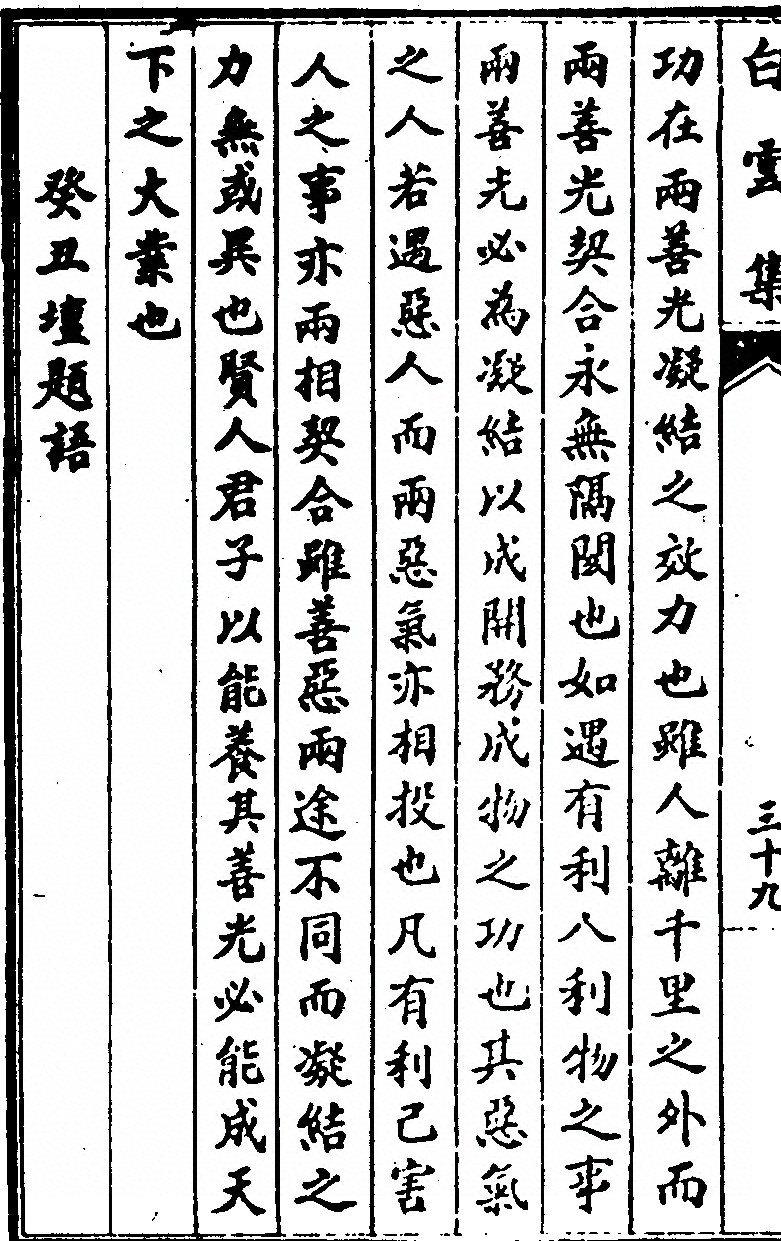 白雲集
三十九
功在兩善光凝結之效力也雖人離千里之外而
兩善光契合永無隔閡也如遇有利人利物之事
兩善光必為凝結以成開務成物之功也其惡氣
之人若遇惡人而兩惡氣亦相投也凡有利己害
人之事亦兩相契合雖善惡兩途不同而凝結之
力無或異也賢人君子以能養其善光必能成天
下之大業也
癸丑壇題語